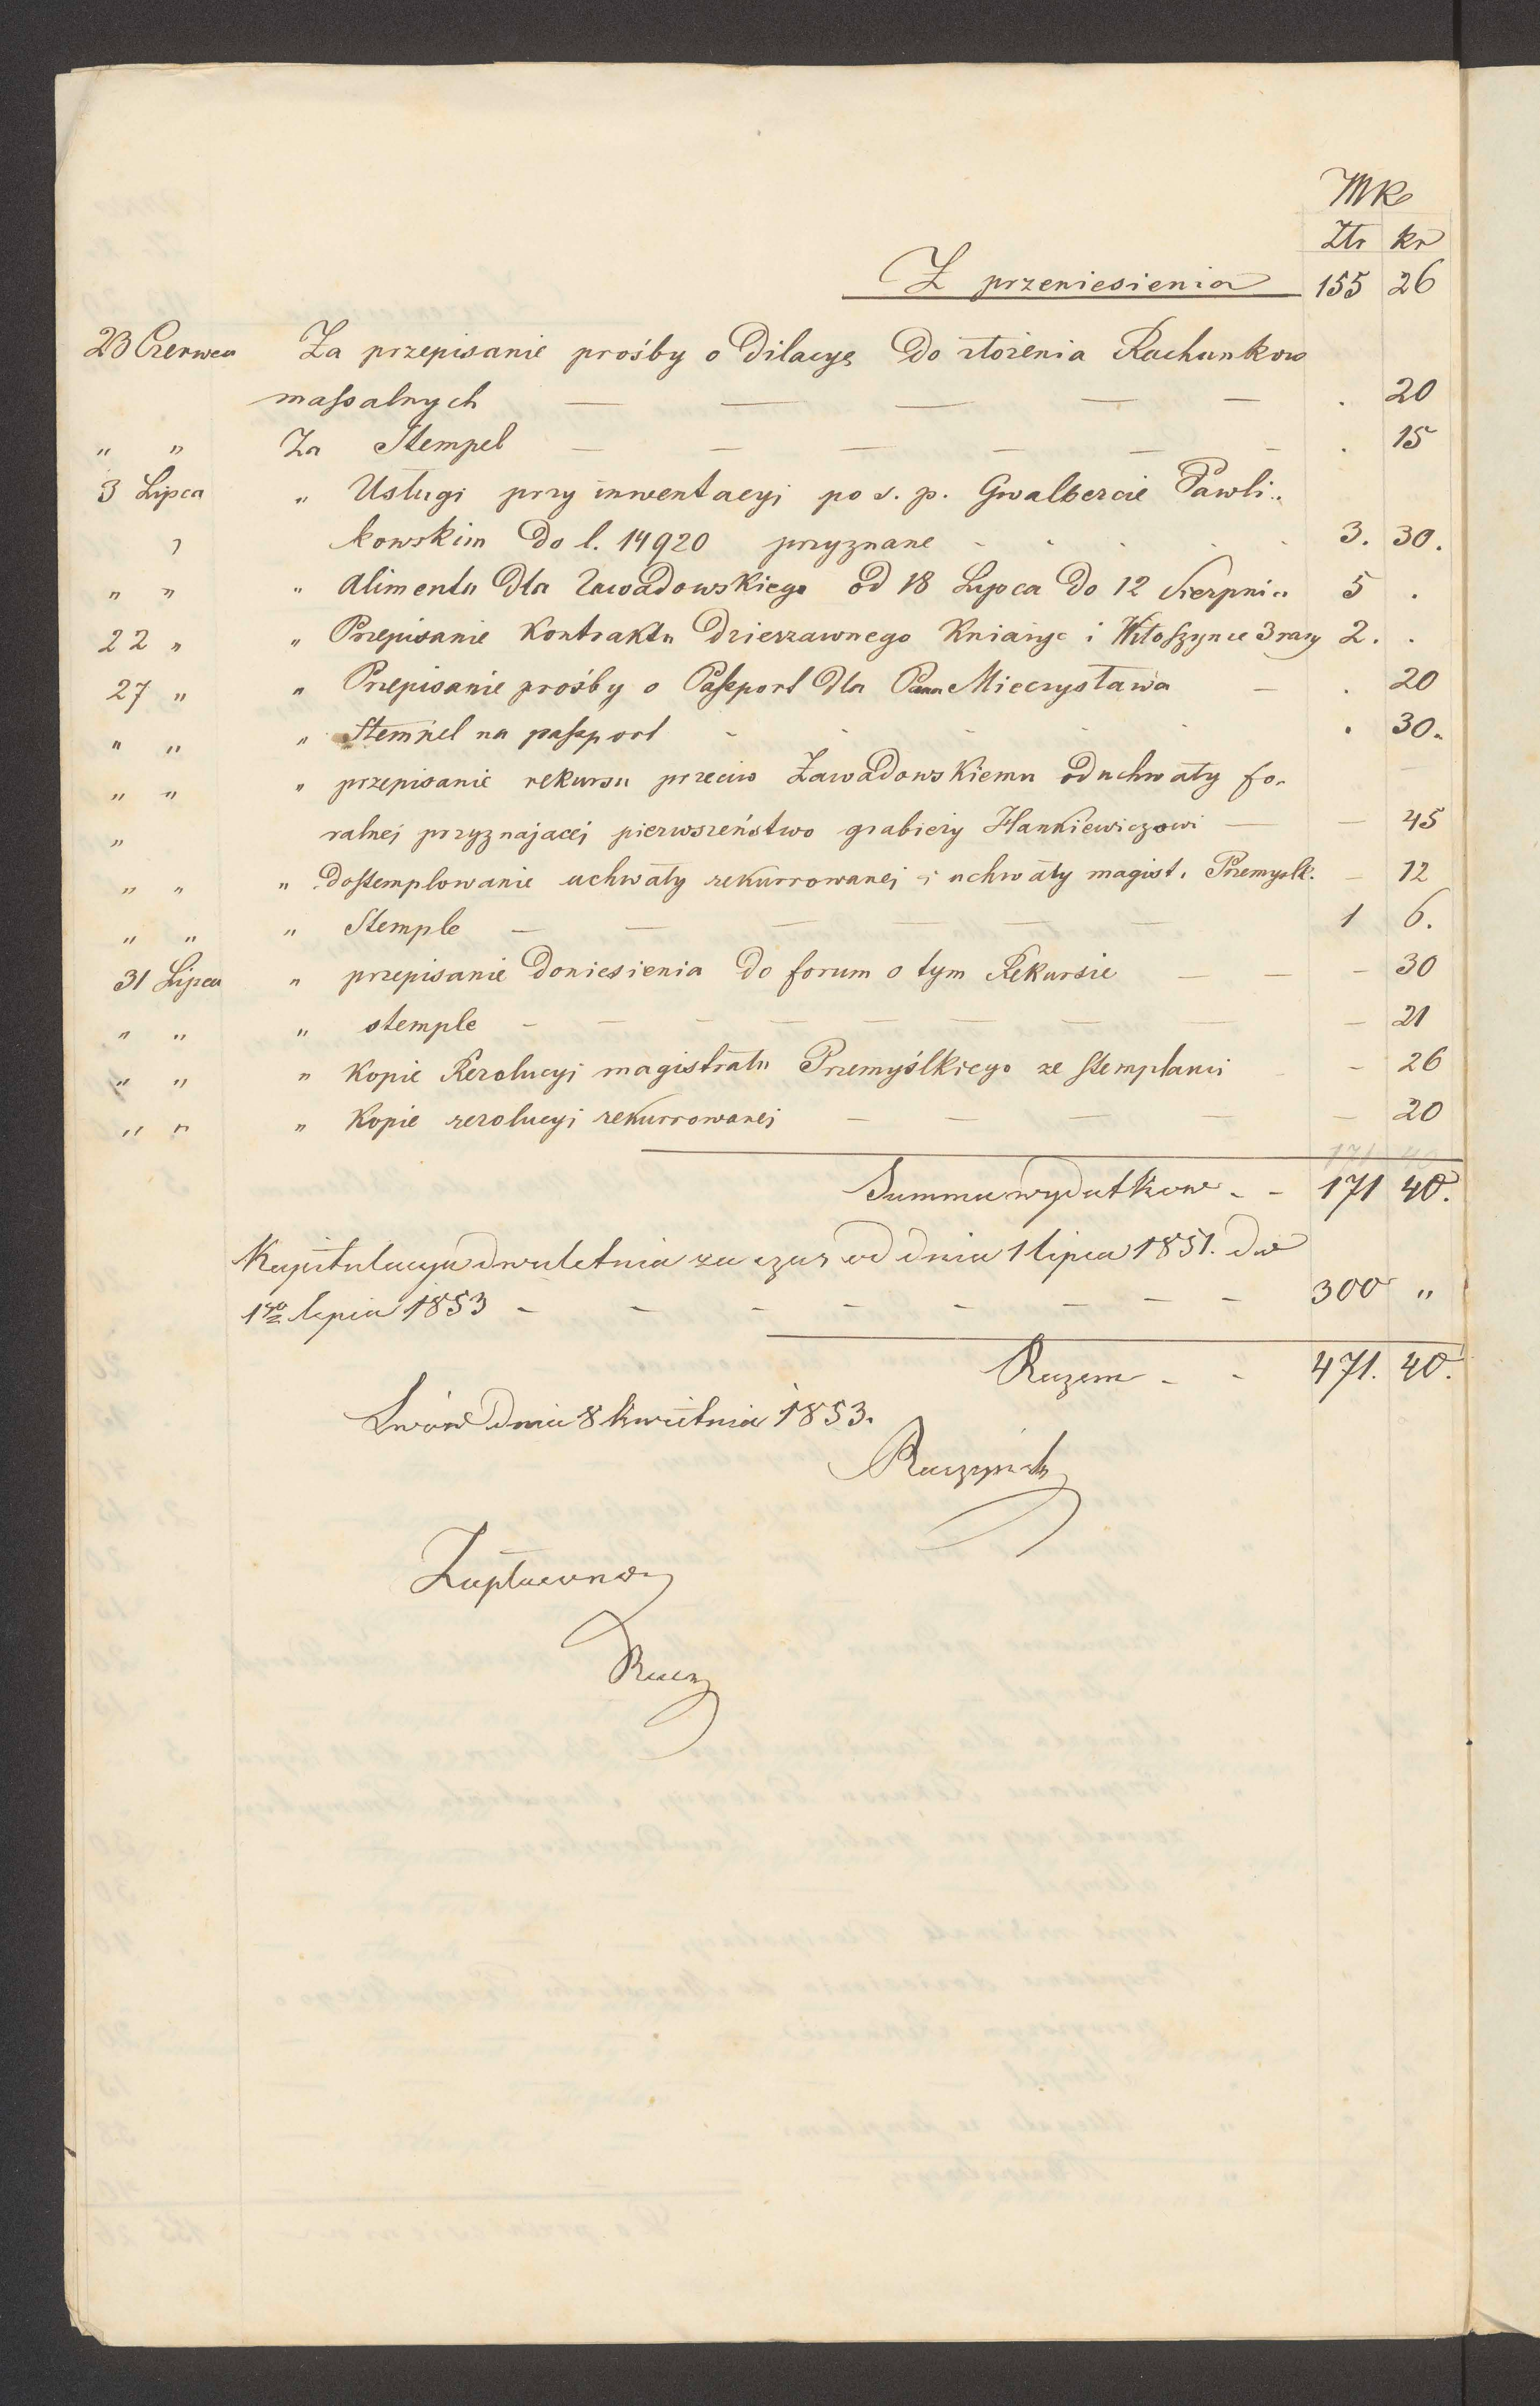 MK
Ztr kr
Z przeniesienia 155 26
23 Czerwca Za przepisanie prośby o Dilacyę Do złożenia Rachunkow
massalnych — — — — — . 20
" " Za Stempel — — — — — — . 15
3 Lipca " Usługi przy inwentacyi po s. p. Gwalbercie Pawli-
kowskim Do l. 14920 przyznane - - - - - 3. 30.
" " " Alimenta Dla Zawadowskiego od 18 Lipca Do 12 Sierpnia 5 .
22 " " Przepisanie Kontraktu Dzierzawnego Kniażyc i Witoszynce 3 razy 2. .
27 " " Przepisanie prośby o Passport Dla Pana Mieczysława — . 20
" " " Stempel na passport - - - - - . 30.
" " " przepisanie rekursu przeciw Zawadowskiemu od uchwały fo-
" ralnej przyznajacej pierwszeństwo grabieży Hankiewiczowi — — 45
" " " Dostemplowanie uchwały rekurrowanej i uchwały magist. Przemyslk. — 12
" " " Stemple — — — — — — 1 6.
31 Lipca " przepisanie Doniesienia Do forum o tym Rekursie — — — 30
" " " stemple — — — — — — — — — 21
" " " Kopie Rezolucyi magistratu Przemyślkiego ze stemplami - — 26
" " " Kopie rezolucyi rekurrowanej — — — — — 20
171 40
Summa wydatkow - - 171 40.
Kapitulacya dwuletnia za czas od dnia 1 lipca 1851. do
1go lipca 1853 - - - - - - - - 300 "
Razem - - 471. 40.
Lwów dnia 8 kwietnia 1853.
Raczyński
Zapłacono
Racz